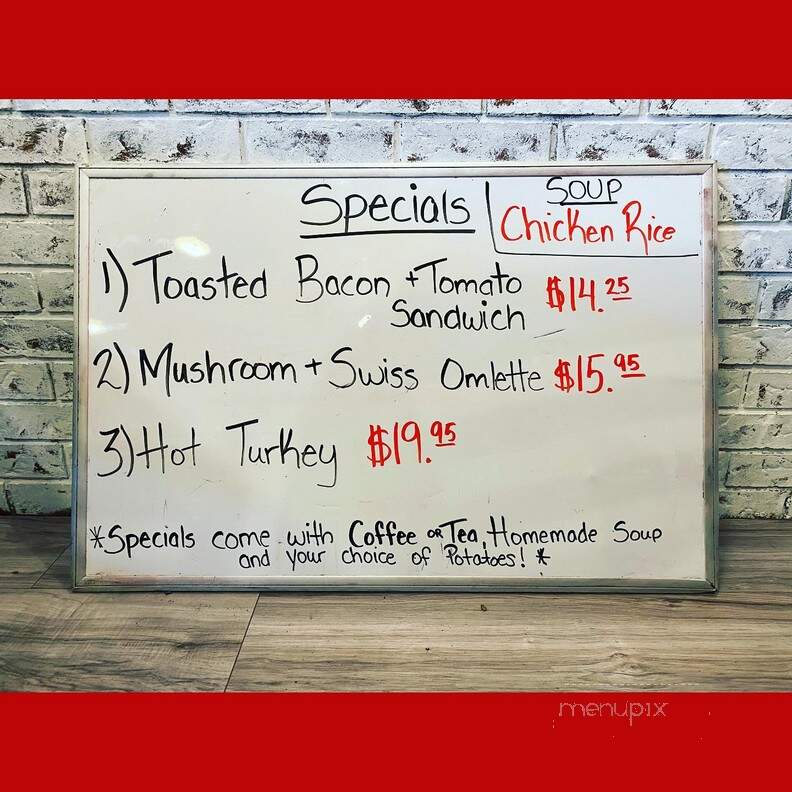 Specials
SOUP
Chicken Rice
1) Toasted Bacon + Tomato $14.25
Sandwich
2) Mushroom + Swiss Omlette $15.95
3) Hot Turkey $19.95
*Specials come with Coffee or Tea, Homemade Soup
and your choice of Potatoes! *
menupix